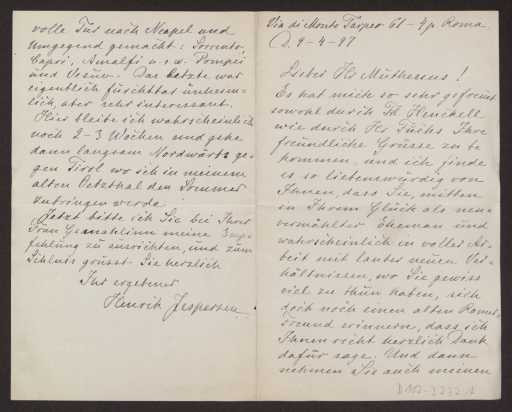 Via di Monte Tarpeo 61 - 4 p. Roma
d. 9-4-97
Lieber Hr Muthesius!
Es hat mich so sehr gefreut
sowohl durch Frl Henckell
wie durch Hr Fuchs Ihre
freundliche Grüsse zu be
kommen, und ich finde
es so liebenswürdig von
Ihnen, dass Sie, mitten
in Ihrem Glück als neu-
vermählter Eheman und
wahrscheinlich in voller Ar-
beit mit lauter neuen Ver-
hältnissen, wo Sie gewiss
viel zu thun haben, sich
doch noch einen alten Romer
Freund erinnern, dass ich
Ihnen recht herzlich Dank
dafür sage. Und dann
nehmen Sie auch meinen
D 102-2232 a
volle Tur nach Neapel und
Umgegend gemacht: Sorrento,
Capri, Amalfi u.s.w. Pompei
und Vesuv. Das Letzte war
eigentlich furchtbar unheim-
lich, aber sehr interessant.
Hier bleibe ich wahrscheinlich
noch 2-3 Wochen und gehe
dann langsam Nordwärts ge-
gen Tirol wo ich in meinem
alten Oetzthal den Sommer
zubringen werde.
Jetzt bitte ich Sie bei Ihrer
Frau Gemahlinn meine Emp-
fehlung zu ausrichten, und zum
Schluss grüsst Sie herzlich
Ihr ergebener
Henrik Jespersen.